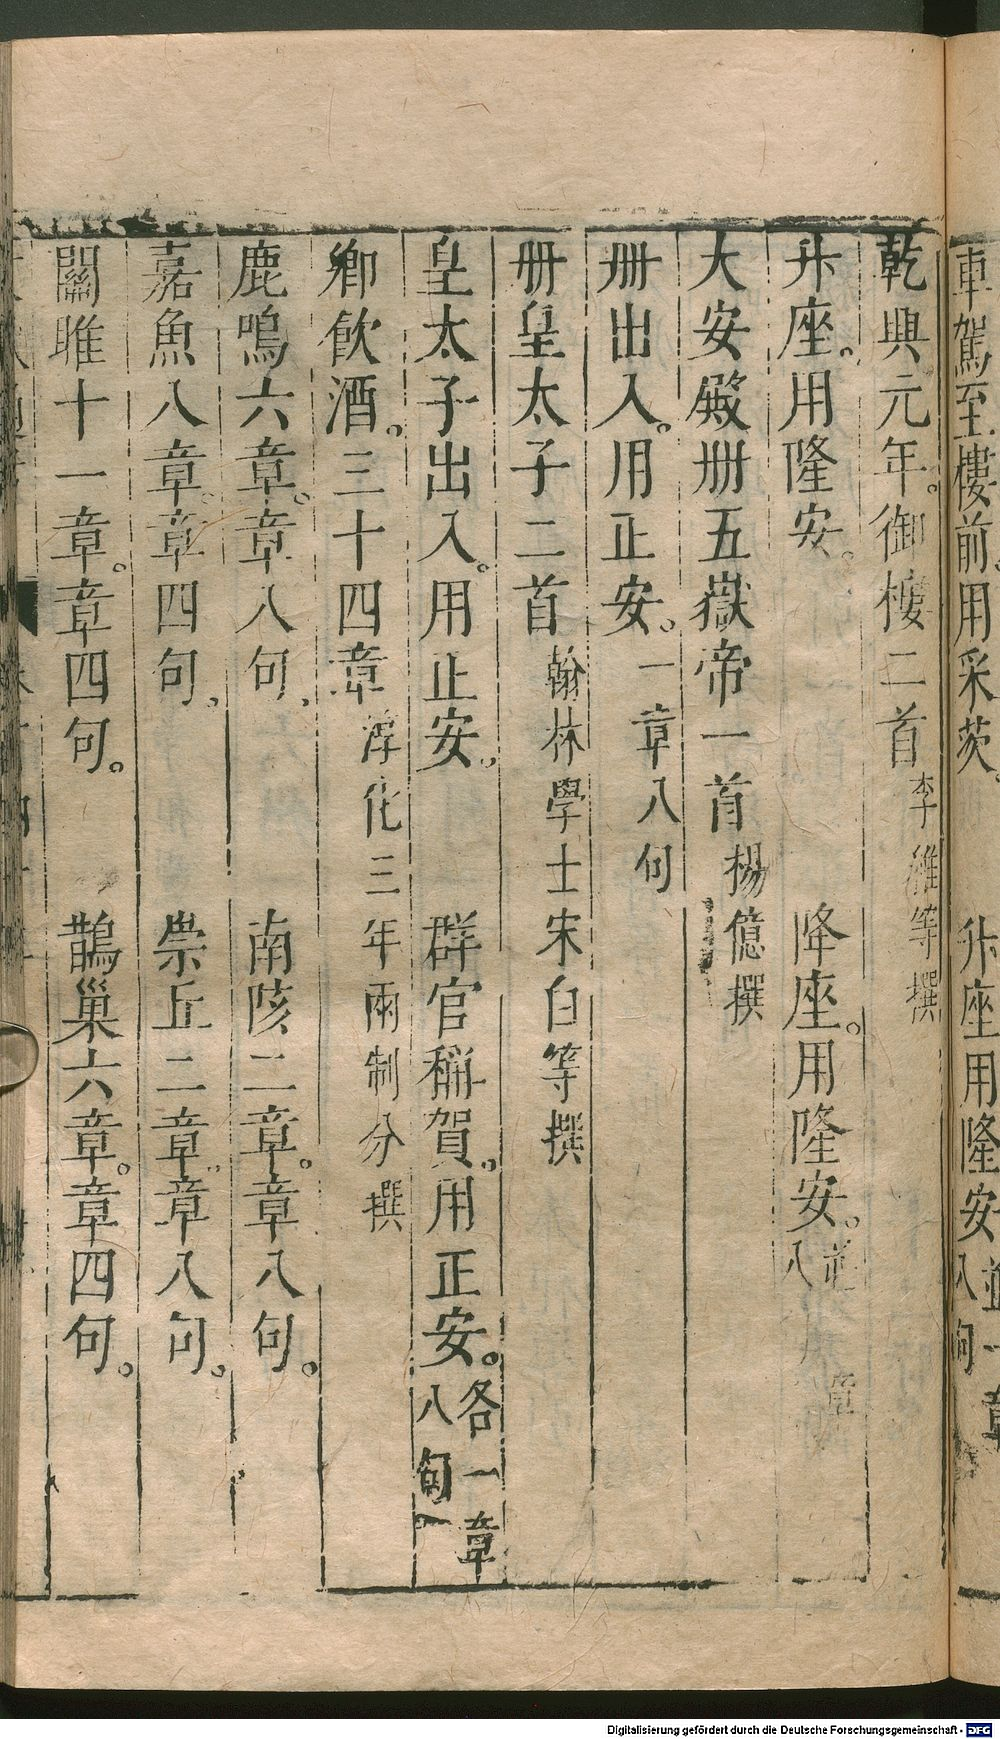 車駕至樓前。用采茨。　升座用隆安並一章八句
乾興元年。御樓二首李維等撰
升座。用隆安。　降座。用隆安。並章八
大安殿冊五嶽帝一首楊億撰
冊出入。用正安。一章八句
冊皇太子二首翰林學士宋白等撰
皇太子出入。用正安。　群官稱賀。用正安。各一章八句
鄉飲酒。三十四章淳化三年兩制分撰
鹿鳴六章。章八句。　南陔二章。章八句。
嘉魚八章。章四句。　崇丘二章。章八句。
關雎十一章。章四句。　鵲巢六章。章四句。
Digitalisierung gefördert durch die Deutsche Forschungsgemeinschaft - DFG